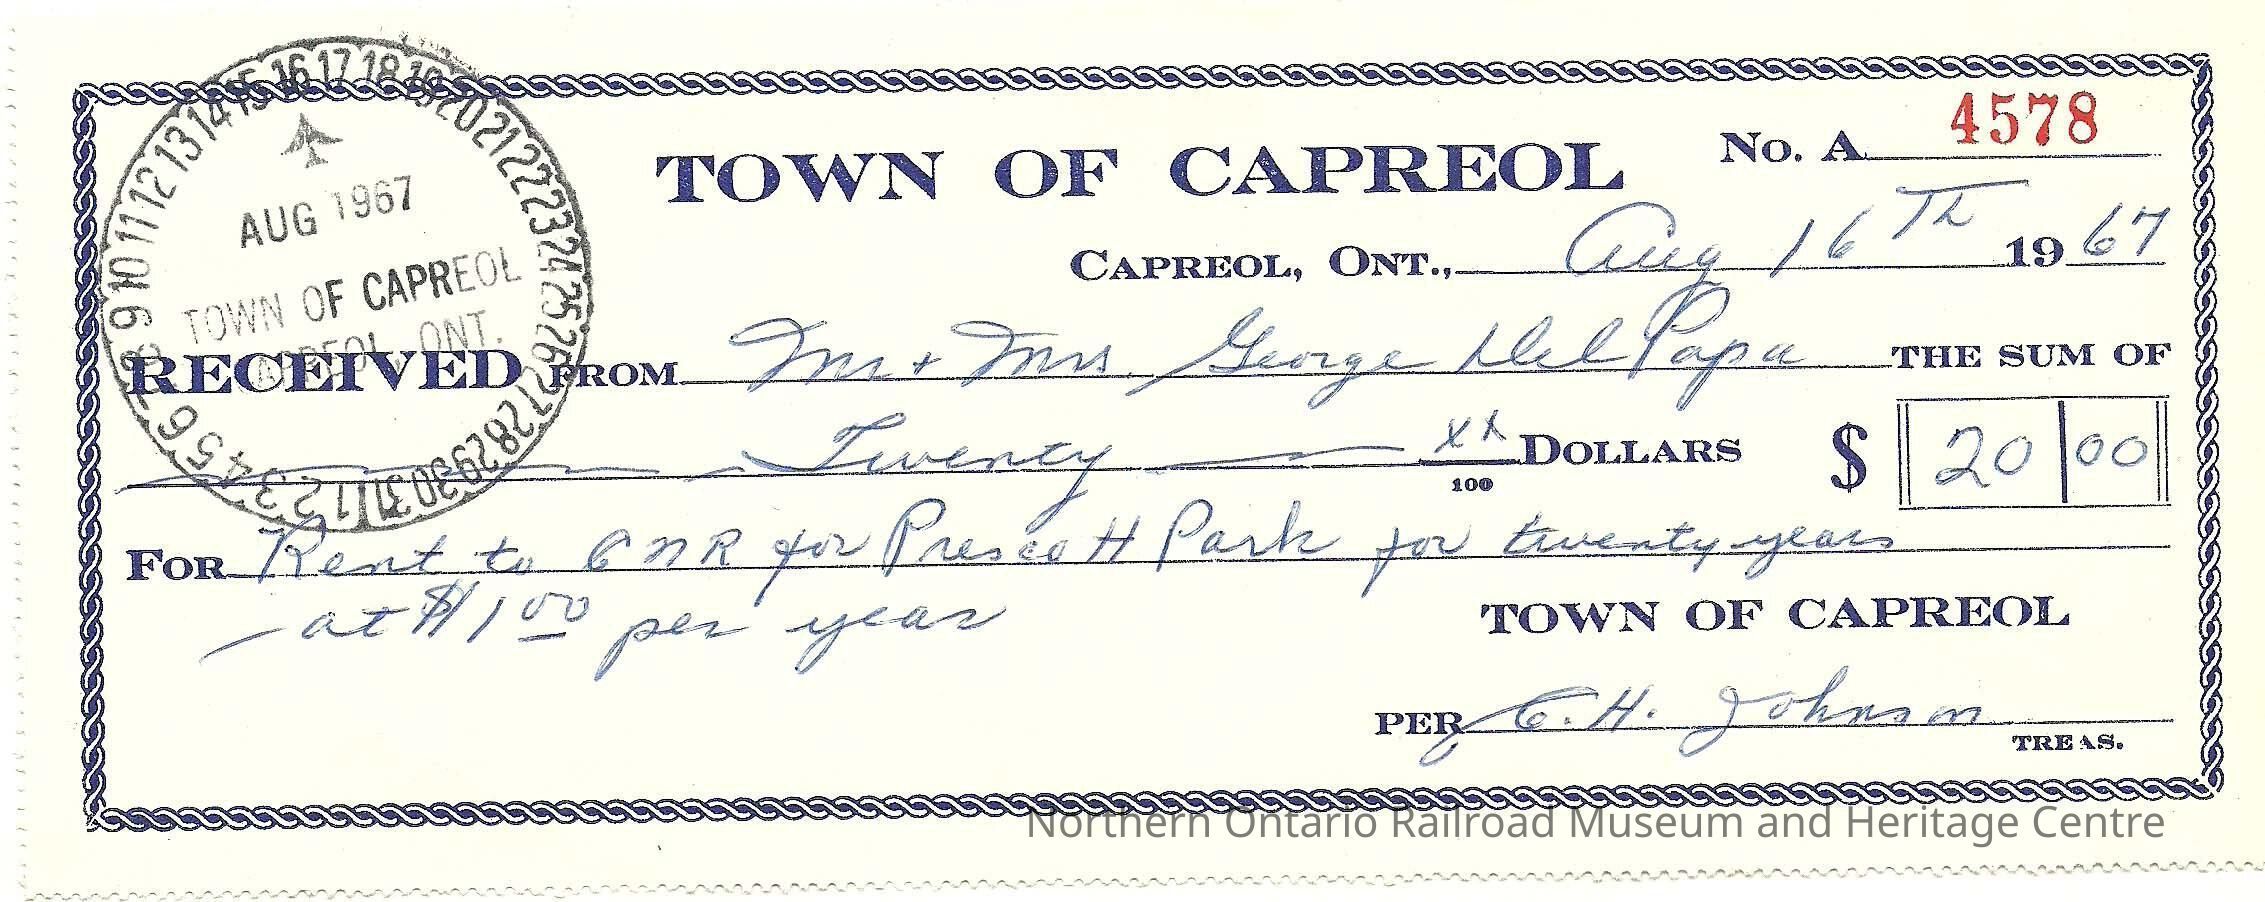 16 17 18 19 20 21 22 23 24 25 26 27 28 29 30 31 1 2 3 4 5 6 7 8 9 10 11 12 13 14 15
AUG 1967
TOWN OF CAPREOL
CAPREOL, ONT.
No. A 4578
TOWN OF CAPREOL
CAPREOL, ONT., Aug 16Th 1967
RECEIVED FROM Mr + Mrs. George Del Papa THE SUM OF
Twenty xx/100 DOLLARS $ 20 00
FOR Rent to CNR for Prescott Park for twenty years
at $1 00 per year
TOWN OF CAPREOL
PER C. H. Johnson
TREAS.
Northern Ontario Railroad Museum and Heritage Centre